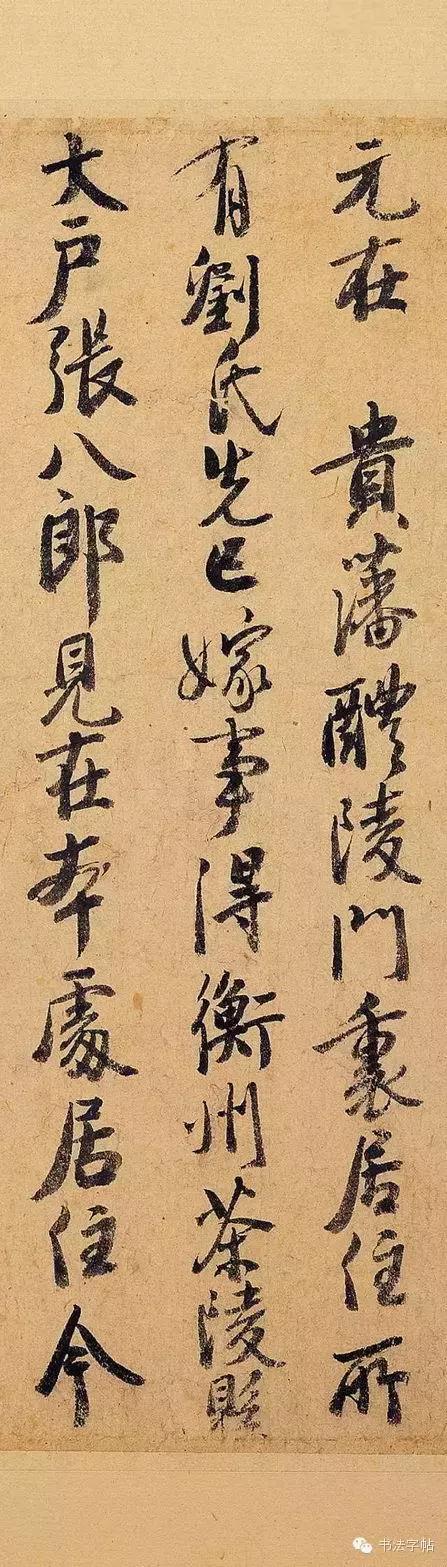 元在 貴藩醴陵門裏居住所
有劉氏先已嫁事得衡州茶陵縣
大户張八郎見在本處居住今
书法字帖